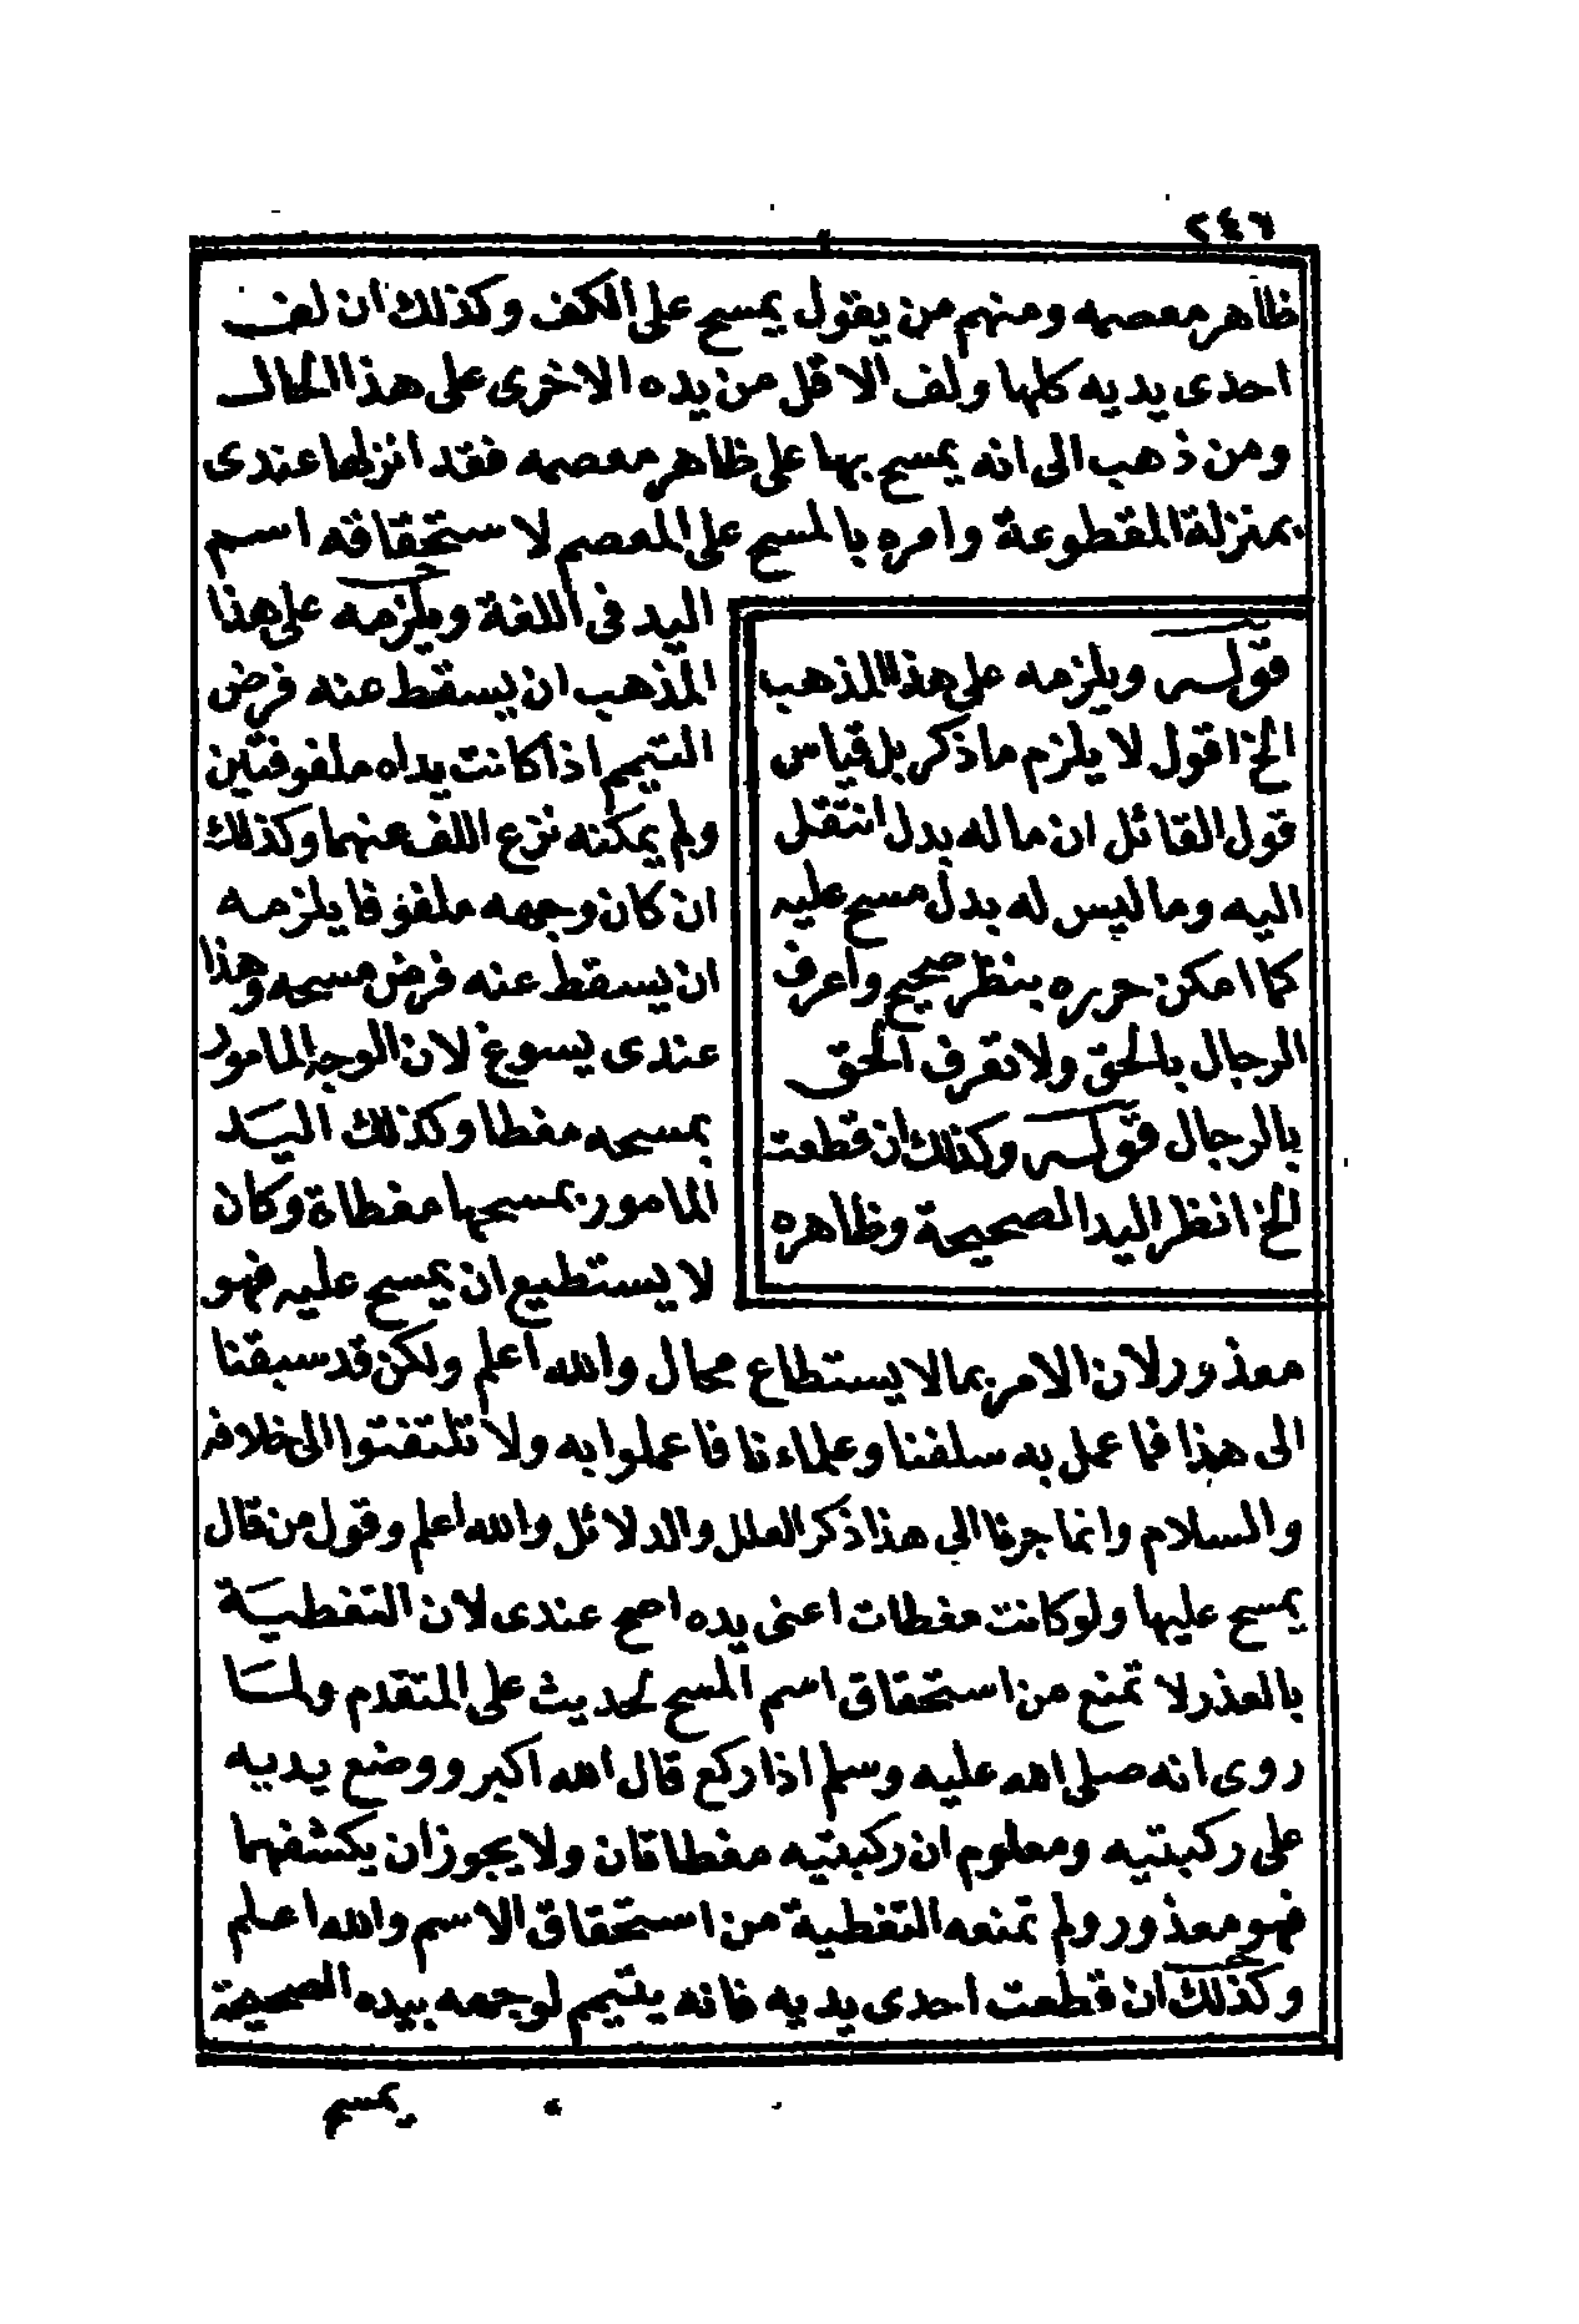 ٢٤٦
ظاهر معصمه ومنهم من يقول يمسح على الكف وكذلك ان لف
احدى يديه كلها ولف الاقل من يده الاخرى على هذا الحال
ومن ذهب الى انه يمسح بها على ظاهر معصمه فقد انزلها عندى
بمنزلة المقطوعة وامره بالمسح على المعصم لاستحقاقه اسم
اليد فى اللغة ويلزمه على هذا
المذهب ان يسقط عنه فرض
التيمم اذا كانت يداه ملفوفتين
ولم يمكنه نزع اللف عنهما وكذلك
ان كان وجهه ملفوفا يلزمه
ان يسقط عنه فرض مسحه وهذا
عندى يسوغ لان الوجه المامور
بمسحه مغطا وكذلك اليد
المامور بمسحها مغطاة وكان
لا يستطيع ان يمسح عليه فهو
قوله ويلزمه على هذا المذهب
الخ اقول لا يلزم ما ذكر بل قياس
قول القائل ان ما له بدل انتقل
اليه وما ليس له بدل مسح عليه
كما امكن حرره بنظر صحيح واعرف
الرجال بالحق ولا تعرف الحق
بالرجال قوله وكذلك ان قطعت
الخ انظر اليد الصحيحة وظاهره
معذور لان الامر بما لا يستطاع محال والله اعلم ولكن قد سبقنا
الى هذا فما عمل به سلفنا وعلماءنا فاعملوا به ولا تلتفتوا الى خلافه
والسلام وانما جرنا الى هذا ذكر العلل والدلائل والله اعلم وقول من قال
يمسح عليها ولو كانت مغطات اعنى يده اصح عندى لان التغطية
بالعذر لا تمنع من استحقاق اسم المسح لحديث على المتقدم ولما
روى انه صلى الله عليه وسلم اذا ركع قال الله اكبر ووضع يديه
على ركبتيه ومعلوم ان ركبتيه مغطاتان ولا يجوز ان يكشفهما
فهو معذور ولم تمنعه التغطية من استحقاق الاسم والله اعلم
وكذلك ان قطعت احدى يديه فانه يتيمم لوجهه بيده الصحيحة
يمسح